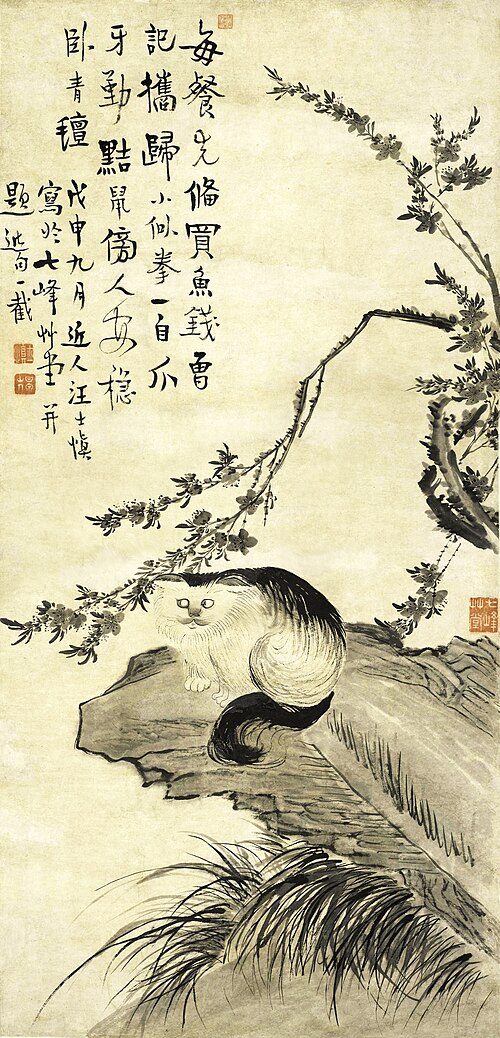 每餐先俻買魚錢曾
記攜歸小似拳一自爪
牙勤黠鼠傍人安穩
卧青氊戊申九月近人汪士慎
寫於七峰艸堂并
題近句一截
七峰艸堂